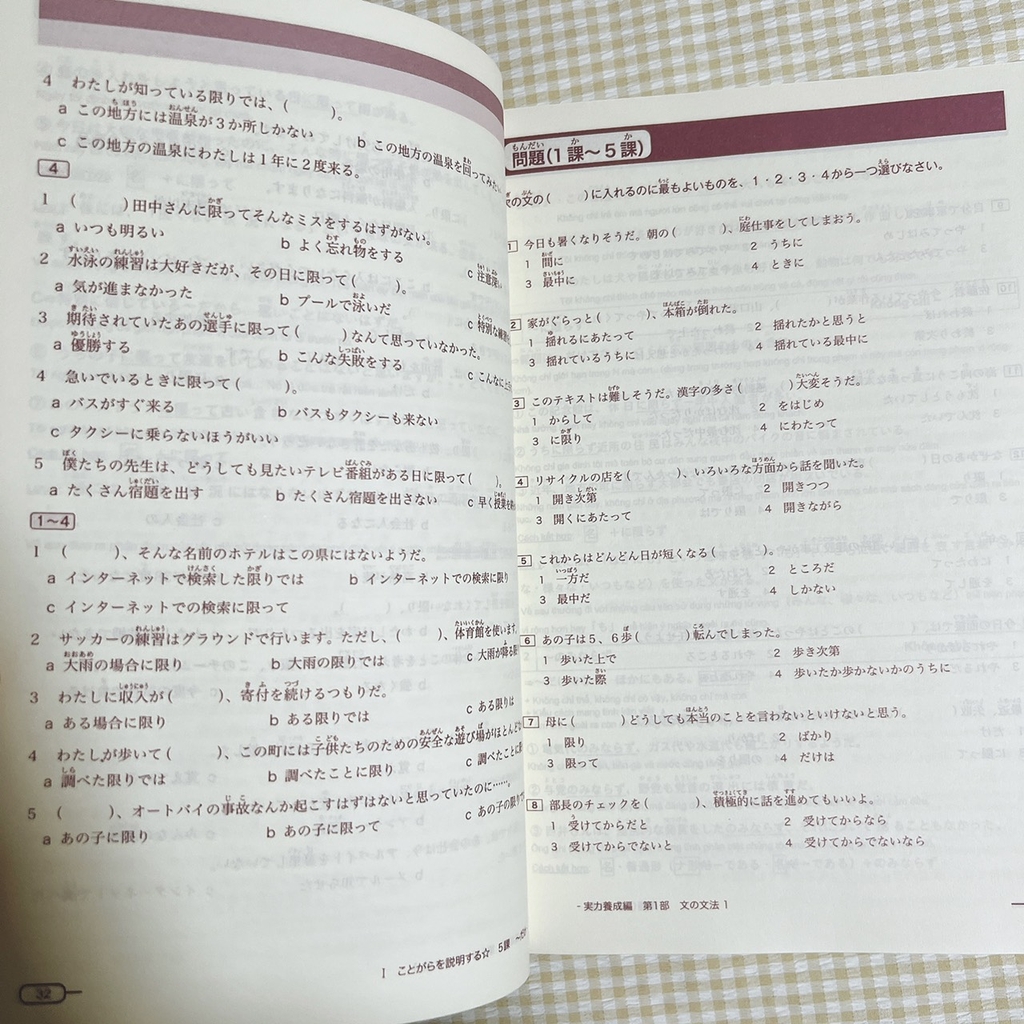 4 わたしが知っている限りでは、( )。
a この地方には温泉が3か所しかない b この地方の温泉を回ってみたい
c この地方の温泉にわたしは1年に2度来る。
4
1 ( )田中さんに限ってそんなミスをするはずがない。
a いつも明るい b よく忘れ物をする c 注意深い
2 水泳の練習は大好きだが、その日に限って( )。
a 気が進まなかった b プールで泳いだ c 特別な練習
3 期待されていたあの選手に限って( )なんて思っていなかった。
a 優勝する b こんな失敗をする c こんなに
4 急いでいるときに限って( )。
a バスがすぐ来る b バスもタクシーも来ない
c タクシーに乗らないほうがいい
5 僕たちの先生は、どうしても見たいテレビ番組がある日に限って( )。
a たくさん宿題を出す b たくさん宿題を出さない c 早く授業を
1~4
1 ( )、そんな名前のホテルはこの県にはないようだ。
a インターネットで検索した限りでは b インターネットでの検索に限り
c インターネットでの検索に限って
2 サッカーの練習はグラウンドで行います。ただし、( )、体育館を使います。
a 大雨の場合に限り b 大雨の限りでは c 大雨が降る
3 わたしに収入が( )、寄付を続けるつもりだ。
a ある場合に限り b ある限りでは c ある限りは
4 わたしが歩いて( )、この町には子供たちのための安全な遊び場がほとんど
a 調べた限りでは b 調べたことに限り c 調べたことは
5 ( )、オートバイの事故なんか起こすはずはないと思っていたのに……。
a あの子に限り b あの子に限って c あの子の限り
I ことがらを説明する☆ 5課
32
問題(1課~5課)
の文の( )に入れるのに最もよいものを、1・2・3・4から一つ選びなさい。
1 今日も暑くなりそうだ。朝の( )、庭仕事をしてしまおう。
1 間に 2 うちに
3 最中に 4 ときに
2 家がぐらっと( )、本箱が倒れた。
1 揺れるにあたって 2 揺れたかと思うと
3 揺れているうちに 4 揺れている最中に
3 このテキストは難しそうだ。漢字の多さ( )大変そうだ。
1 からして 2 をはじめ
3 に限り 4 にわたって
4 リサイクルの店を( )、いろいろな方面から話を聞いた。
1 開き次第 2 開きつつ
3 開くにあたって 4 開きながら
5 これからはどんどん日が短くなる( )。
1 一方だ 2 ところだ
3 最中だ 4 しかない
6 あの子は5、6歩( )転んでしまった。
1 歩いた上で 2 歩き次第
3 歩いた際 4 歩いたか歩かないかのうちに
7 母に( )どうしても本当のことを言わないといけないと思う。
1 限り 2 ばかり
3 限って 4 だけは
8 部長のチェックを( )、積極的に話を進めてもいいよ。
1 受けてからだと 2 受けてからなら
3 受けてからでないと 4 受けてからでないなら
実力養成編 第1部 文の文法1